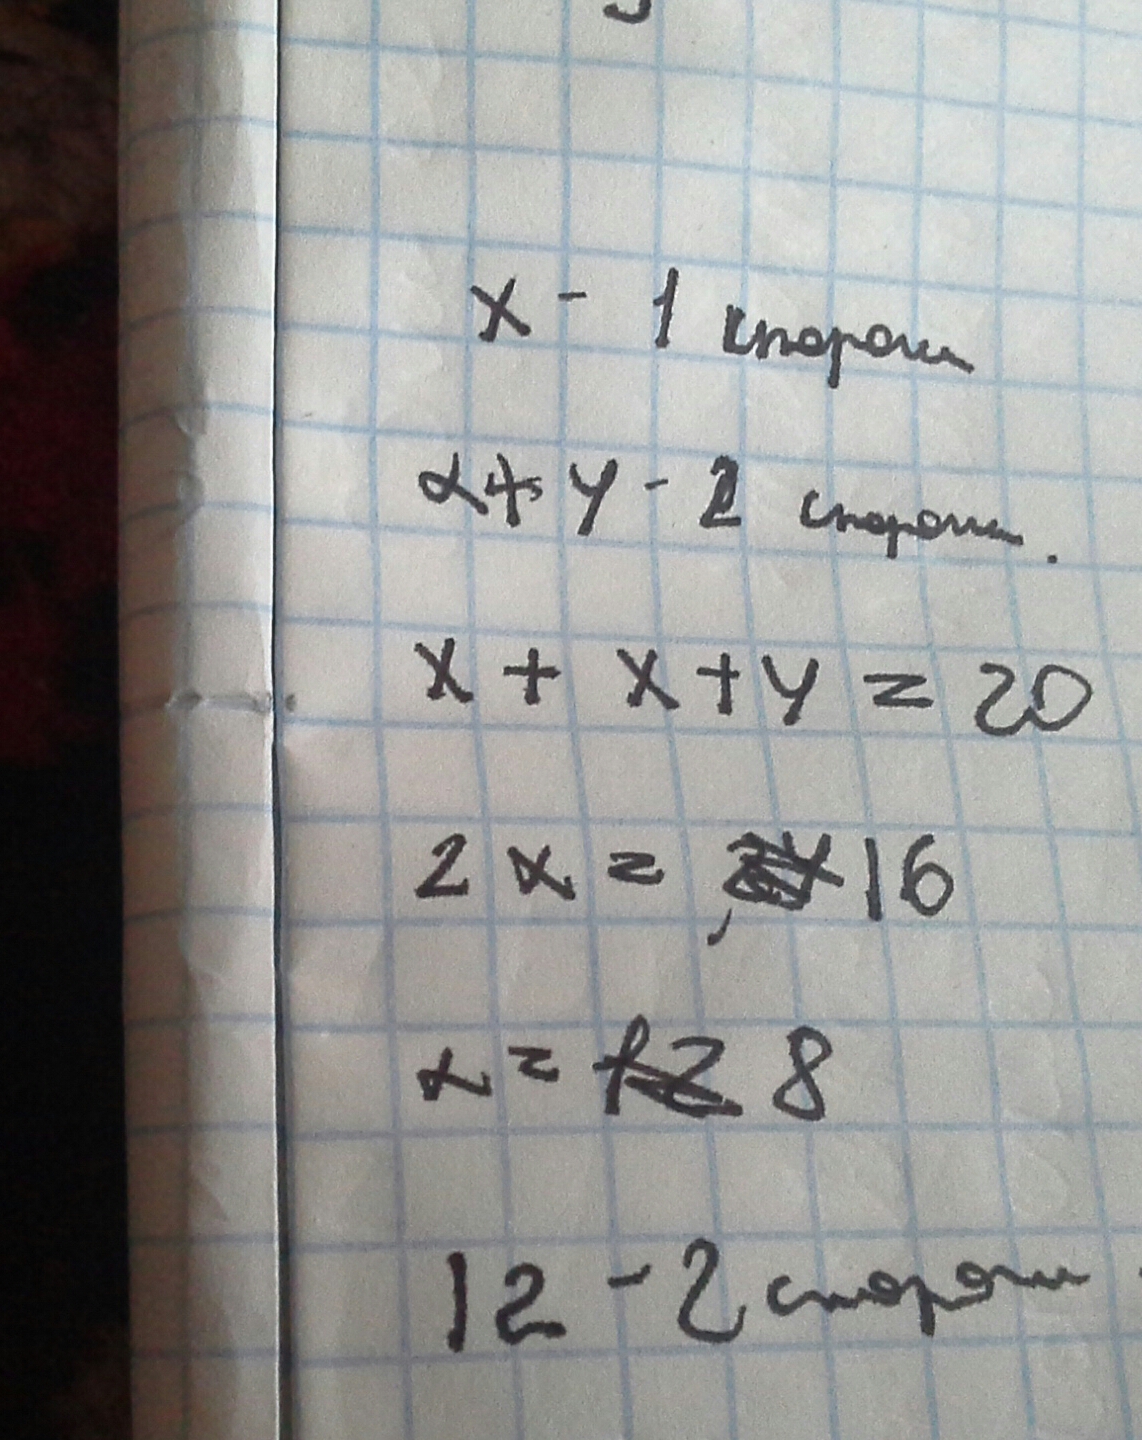 x - 1 сторон
x+ у - 2 сторон.
x + x + у = 20
2x = 16
x = 8
12 - 2 сторон